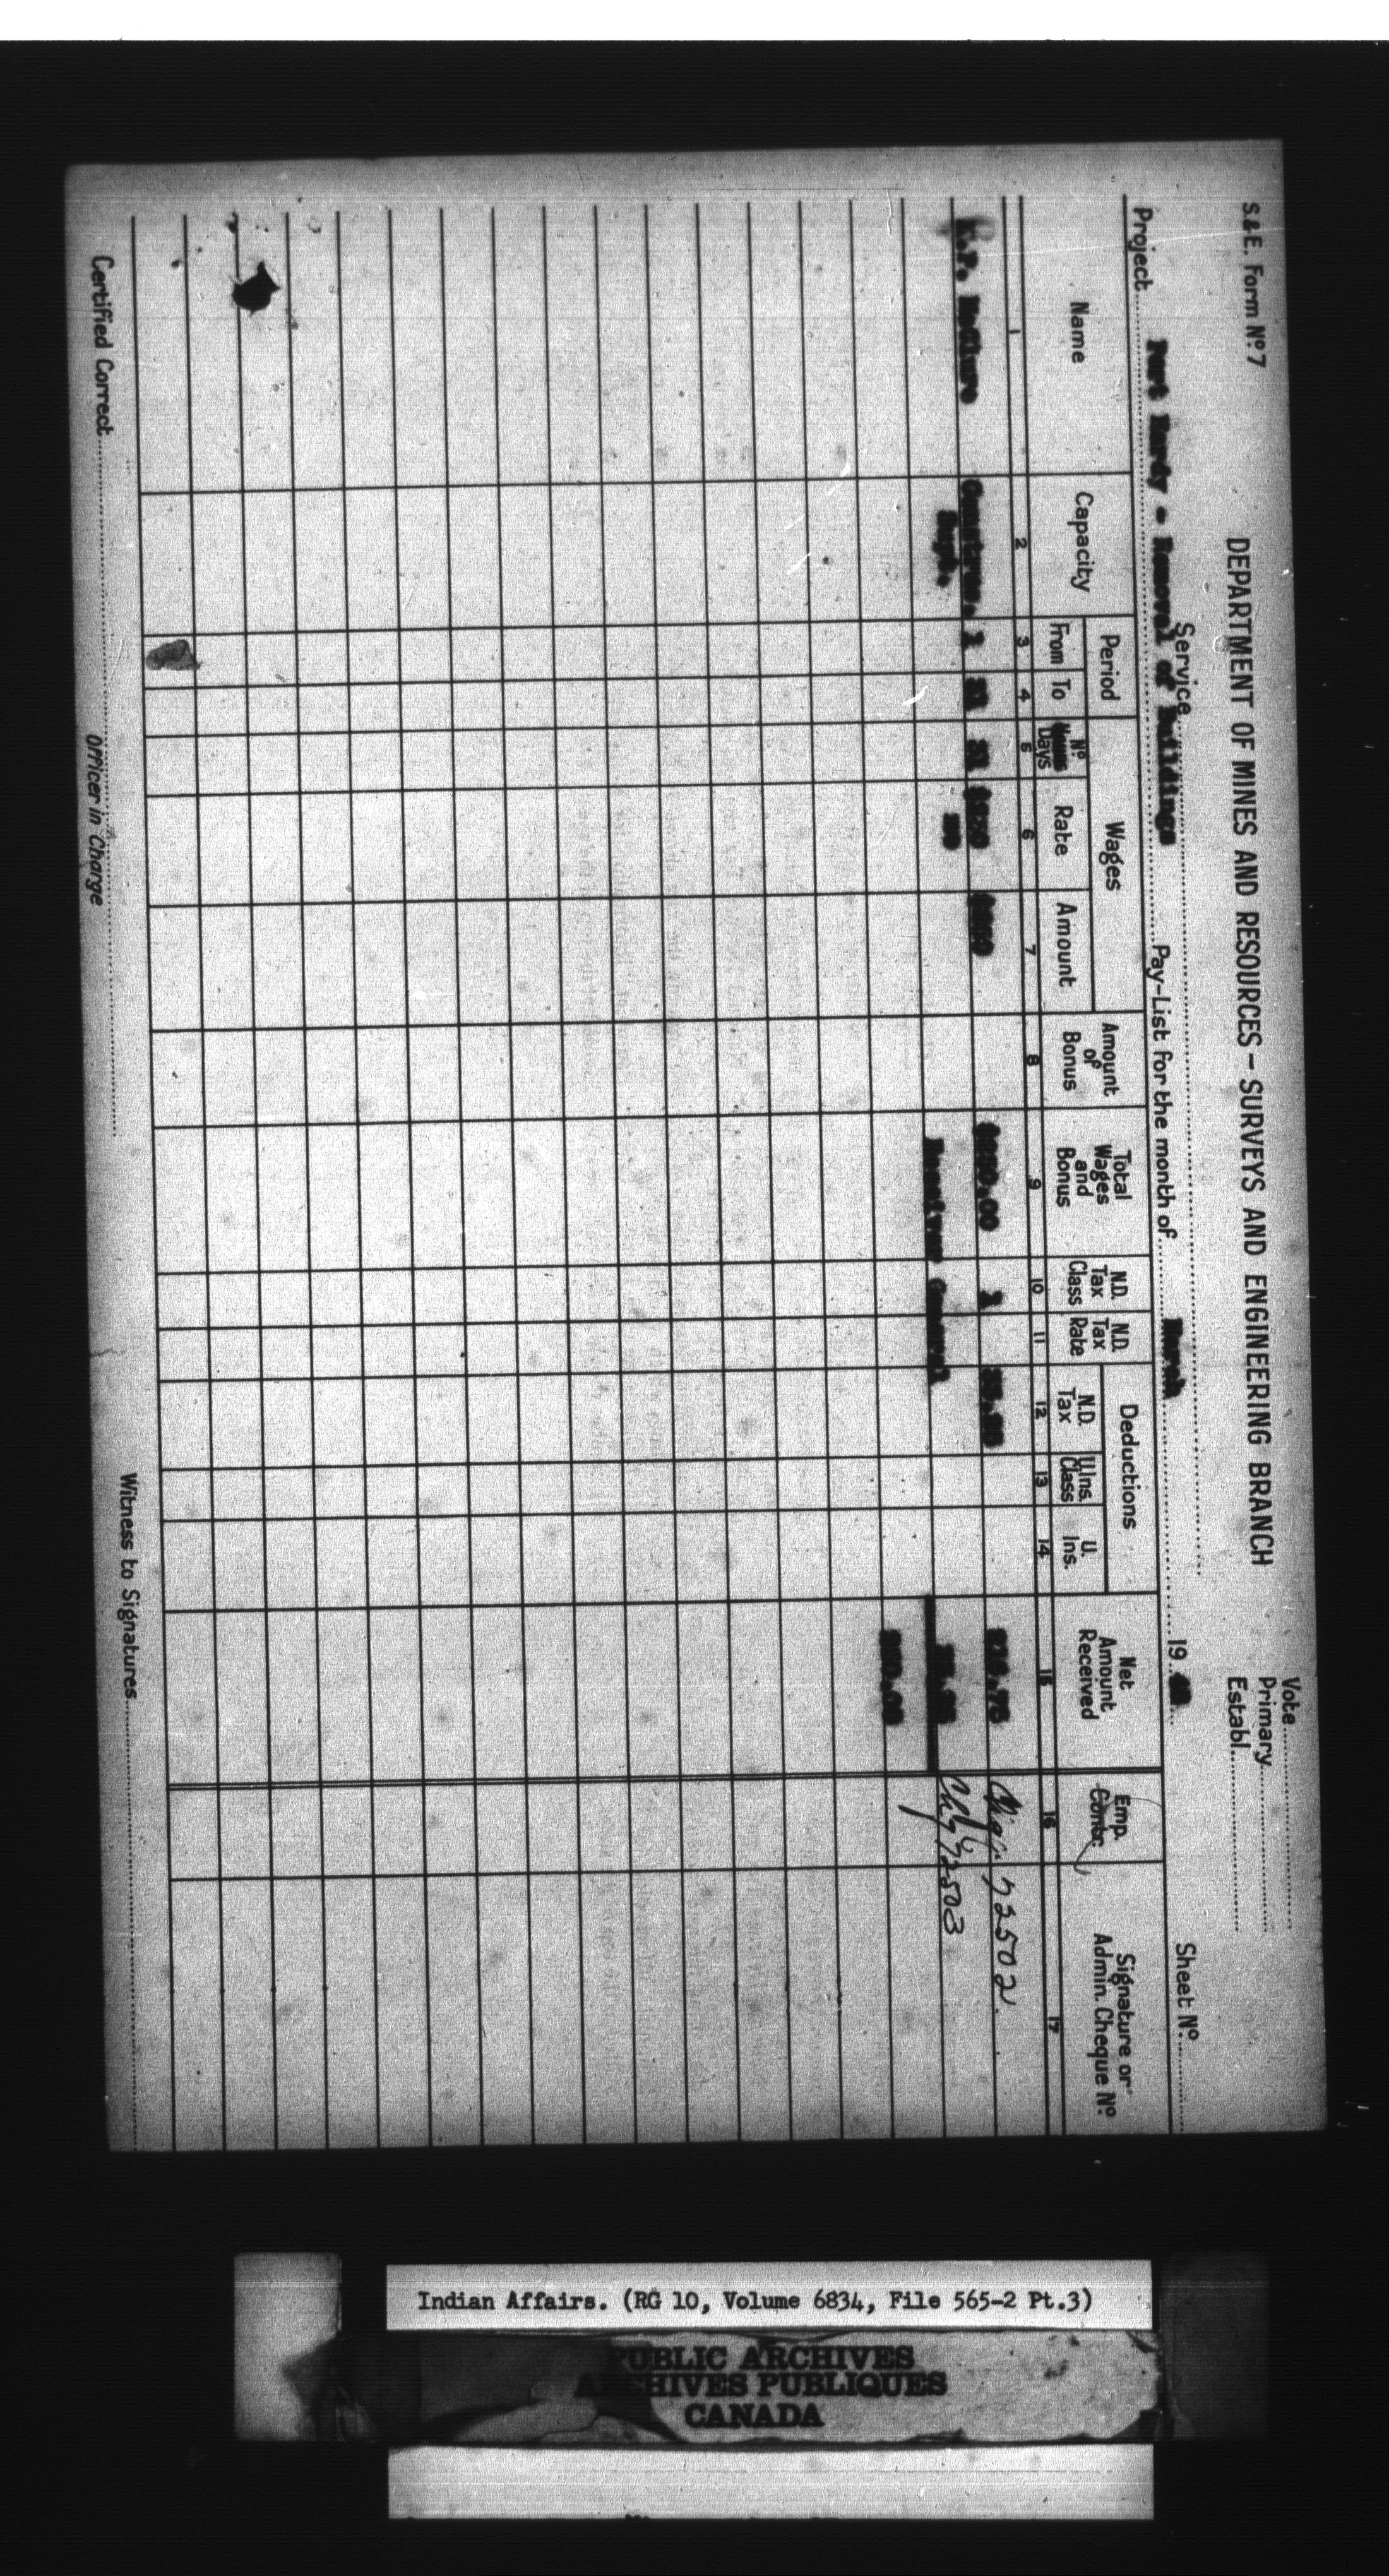 S.& E. Form Nº 7
DEPARTMENT OF MINES AND RESOURCES – SURVEYS AND ENGINEERING BRANCH
Vote
Primary
Establ.
Service
Sheet Nº
Project Port Hardy - Removal of Buildings Pay-List for the month of March 19
Name Capacity Period Wages Amount of Bonus Total Wages and Bonus N.D. Tax Class N.D. Tax Rate Deductions Net Amount Received Emp. Contr. Signature or Admin. Cheque Nº
From To Nº Hours Days Rate Amount N.D. Tax U.Ins. Class U. Ins.
1 2 3 4 5 6 7 8 9 10 11 12 13 14 15 16 17
McClure Construc. 1 31 31 1 Chq. 72502
Supt. Receiver General Chq 72503
Certified Correct
Officer in Charge
Witness to Signatures
Indian Affairs. (RG 10, Volume 6834, File 565-2 Pt.3)
PUBLIC ARCHIVES
ARCHIVES PUBLIQUES
CANADA